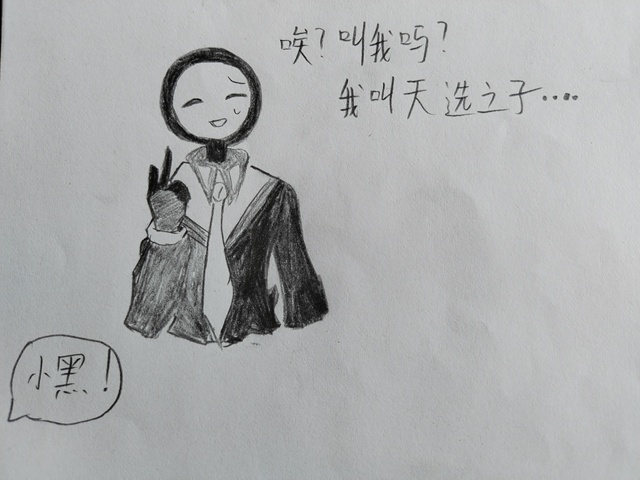 唉?叫我吗?
我叫天选之子····
小黑!